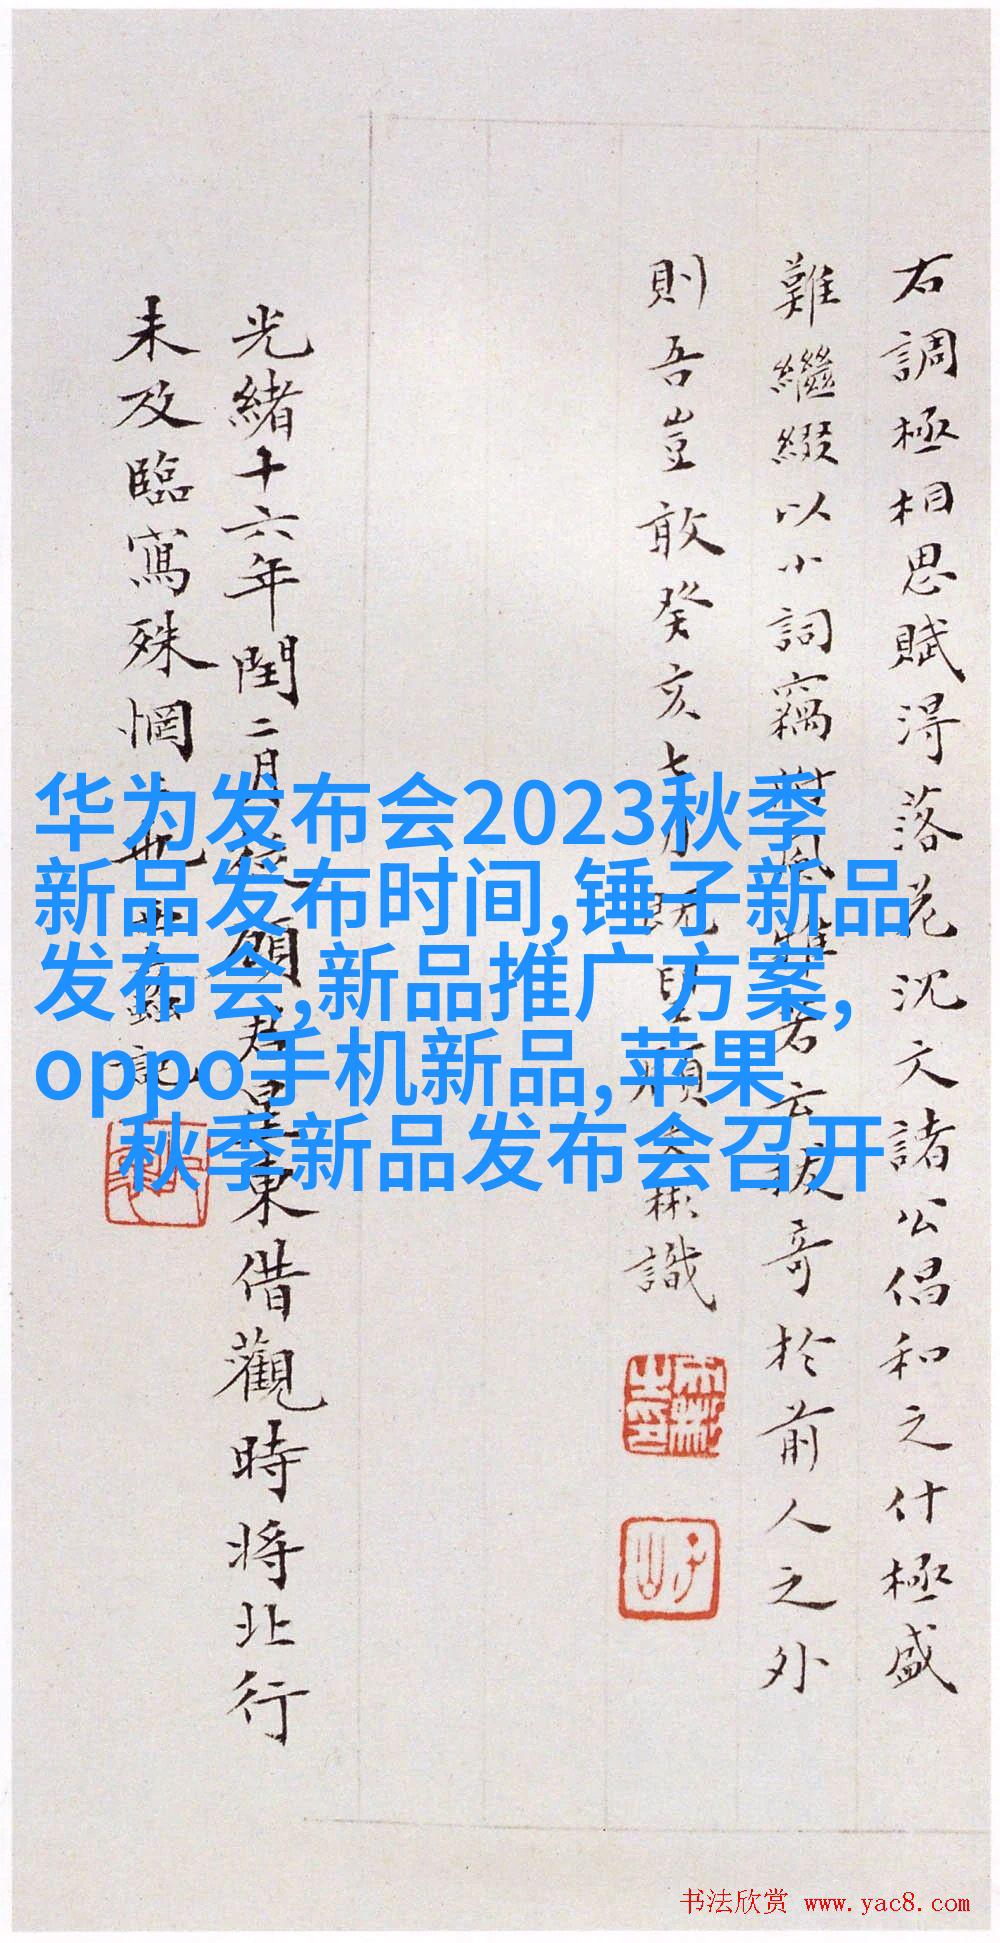 右調極相思賦得落花沈文諸公倡和之什極盛
難繼綴以小詞竊
若云拔奇於前人之外
則吾豈敢癸亥七月既
彬識
光緒十六年閏二月從
星東借觀時將北行
未及臨寫殊惘
記
华为发布会2023秋季
新品发布时间,锤子新品
发布会,新品推广方案,
oppo手机新品,苹果
秋季新品发布会召开
书法欣赏 www.yac8.com